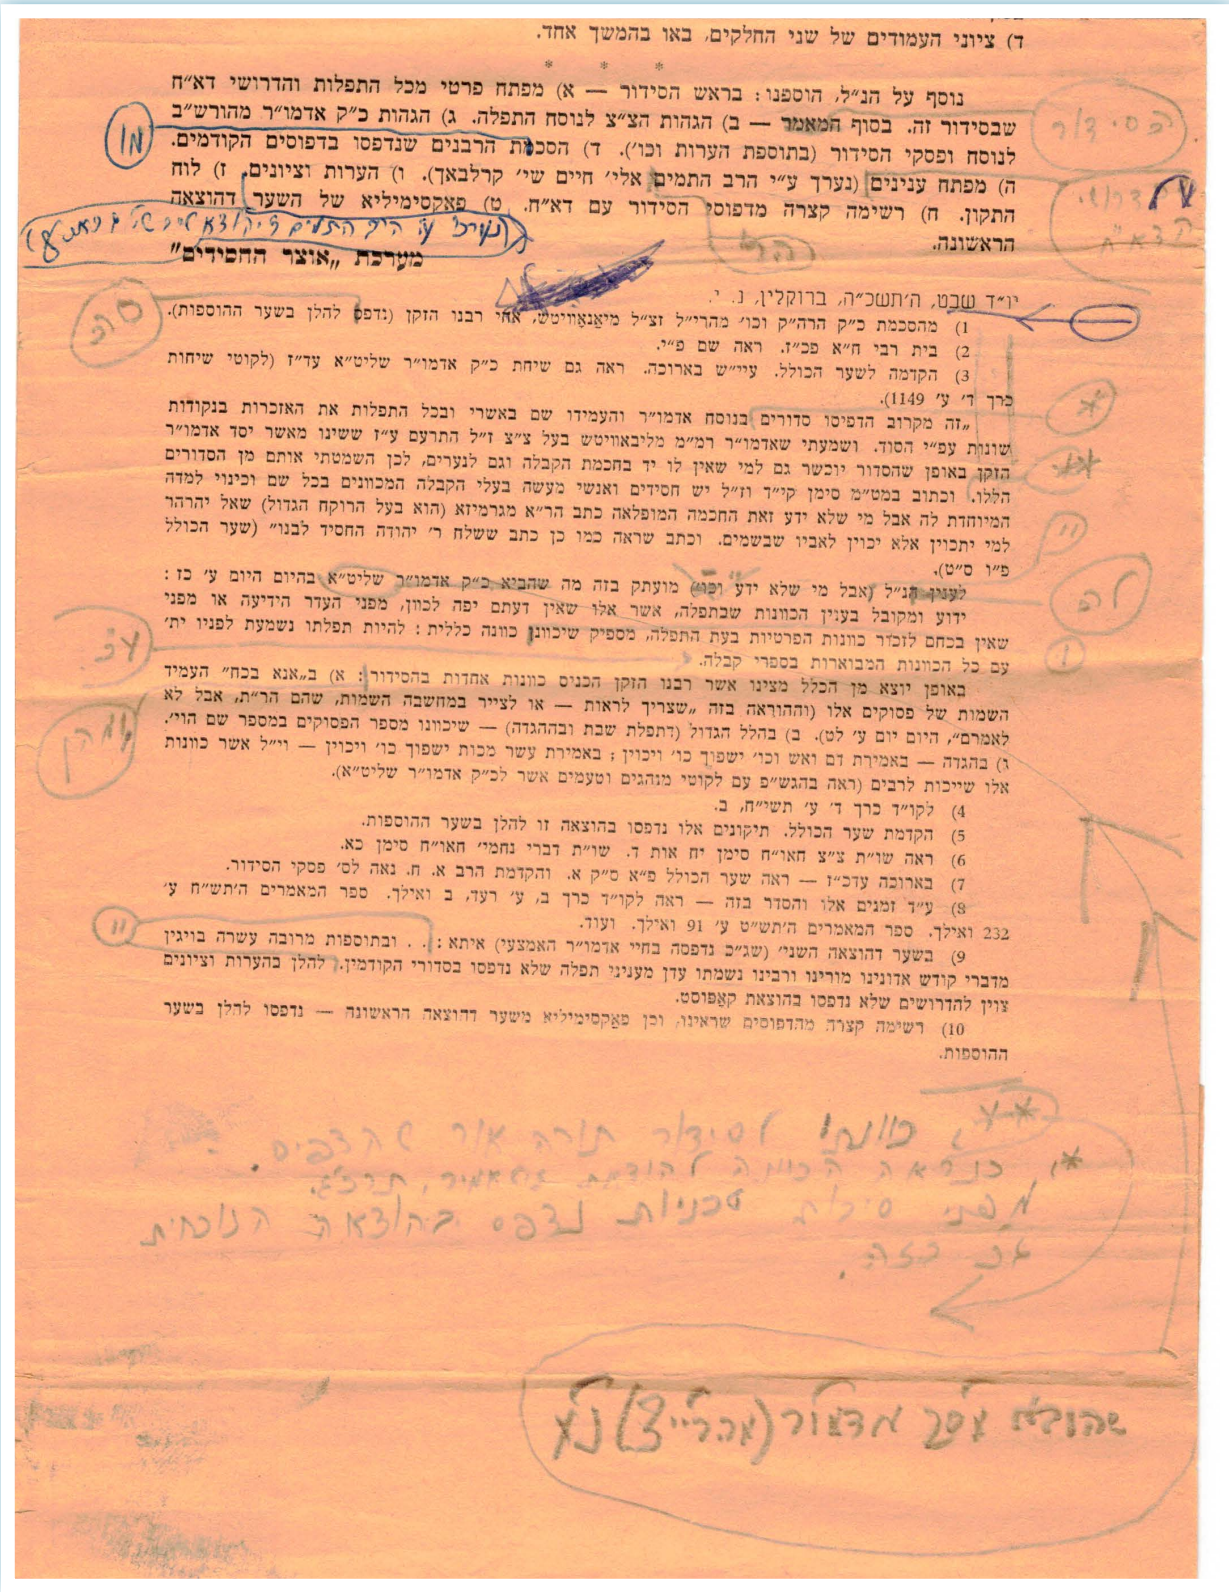 ד) ציוני העמודים של שני החלקים, באו בהמשך אחד.
* * *
נוסף על הנ״ל, הוספנו: בראש הסידור — א) מפתח פרטי מכל התפלות והדרושי דא״ח
שבסידור זה. בסוף המאמר — ב) הגהות הצ״צ לנוסח התפלה. ג) הגהות כ״ק אדמו״ר מהורש״ב
לנוסח ופסקי הסידור (בתוספת הערות וכו׳). ד) הסכמת הרבנים שנדפסו בדפוסים הקודמים.
ה) מפתח ענינים (נערך ע״י הרב התמים אלי׳ חיים שי׳ קרלבאך). ו) הערות וציונים. ז) לוח
התקון. ח) רשימה קצרה מדפוסי הסידור עם דא״ח. ט) פאקסימיליא של השער דהוצאה
הראשונה.
מערכת „אוצר החסידים"
יו״ד שבט, ה׳תשכ״ה, ברוקלין, נ. י.
1) מהסכמת כ״ק הרה״ק וכו׳ מהרי״ל זצ״ל מיאַנאָוויטש, אחי רבנו הזקן (נדפס להלן בשער ההוספות).
2) בית רבי ח״א פכ״ז. ראה שם פ״י.
3) הקדמה לשער הכולל. עיי״ש בארוכה. ראה גם שיחת כ״ק אדמו״ר שליט״א עד״ז (לקוטי שיחות
כרך ד׳ ע׳ 1149).
„זה מקרוב הדפיסו סדורים בנוסח אדמו״ר והעמידו שם באשרי ובכל התפלות את האזכרות בנקודות
שונות עפ״י הסוד. ושמעתי שאדמו״ר רמ״מ מליבאוויטש בעל צ״צ ז״ל התרעם ע״ז ששינו מאשר יסד אדמו״ר
הזקן באופן שהסדור יוכשר גם למי שאין לו יד בחכמת הקבלה וגם לנערים, לכן השמטתי אותם מן הסדורים
הללו. וכתוב במט״מ סימן קי״ד וז״ל יש חסידים ואנשי מעשה בעלי הקבלה המכוונים בכל שם וכינוי למדה
המיוחדת לה אבל מי שלא ידע זאת החכמה המופלאה כתב הר״א מגרמיזא (הוא בעל הרוקח הגדול) שאל יהרהר
למי יתכוין אלא יכוין לאביו שבשמים. וכתב שראה כמו כן כתב ששלח ר׳ יהודה החסיד לבנו״ (שער הכולל
פ״ו ס״ט).
לענין הנ״ל (אבל מי שלא ידע וכו׳) מועתק בזה מה שהביא כ״ק אדמו״ר שליט״א בהיום היום ע׳ כז:
ידוע ומקובל בענין הכוונות שבתפלה, אשר אלו שאין דעתם יפה לכוון, מפני העדר הידיעה או מפני
שאין בכחם לזכור כוונות הפרטיות בעת התפלה, מספיק שיכוונו כוונה כללית: להיות תפלתו נשמעת לפניו ית׳
עם כל הכוונות המבוארות בספרי קבלה.
באופן יוצא מן הכלל מצינו אשר רבנו הזקן הכניס כוונות אחדות בהסידור: א) ב„אנא בכח״ העמיד
השמות של פסוקים אלו (וההוראה בזה „שצריך לראות — או לצייר במחשבה השמות, שהם הר״ת, אבל לא
לאמרם״, היום יום ע׳ לט). ב) בהלל הגדול (דתפלת שבת ובההגדה) — שיכוונו מספר הפסוקים במספר שם הוי׳.
ג) בהגדה — באמירת דם ואש וכו׳ ישפוך כו׳ ויכוין; באמירת עשר מכות ישפוך כו׳ ויכוין — וי״ל אשר כוונות
אלו שייכות לרבים (ראה בהגש״פ עם לקוטי מנהגים וטעמים אשר לכ״ק אדמו״ר שליט״א).
4) לקו״ד כרך ד׳ ע׳ תשי״ח, ב.
5) הקדמת שער הכולל. תיקונים אלו נדפסו בהוצאה זו להלן בשער ההוספות.
6) ראה שו״ת צ״צ חאו״ח סימן יח אות ד. שו״ת דברי נחמי׳ חאו״ח סימן כא.
7) בארוכה עדכ״ז — ראה שער הכולל פ״א ס״ק א. והקדמת הרב א. ח. נאה לס׳ פסקי הסידור.
8) ע״ד זמנים אלו והסדר בזה — ראה לקו״ד כרך ב, ע׳ רעד, ב ואילך. ספר המאמרים ה׳תש״ח ע׳
232 ואילך. ספר המאמרים ה׳תש״ט ע׳ 91 ואילך. ועוד.
9) בשער דהוצאה השני׳ (שג״כ נדפסה בחיי אדמו״ר האמצעי) איתא: . . ובתוספות מרובה עשרה בויגין
מדברי קודש אדונינו מורינו ורבינו נשמתו עדן מעניני תפלה שלא נדפסו בסדורי הקודמין. להלן בהערות וציונים
צויין להדרושים שלא נדפסו בהוצאת קאַפּוסט.
10) רשימה קצרה מהדפוסים שראינו, וכן פאַקסימיליא משער דהוצאה הראשונה — נדפסו להלן בשער
ההוספות.
כוונתי לסידור תורה אור שהדפיס.
מפני סיבות טכניות נדפס בהוצאה הנוכחית